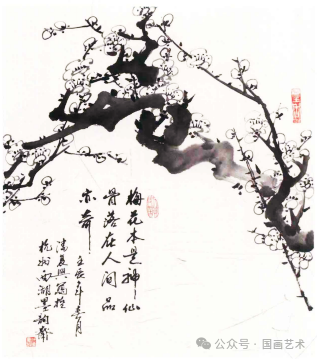 梅花本是神仙
骨落在人间品
亦奇
壬辰年春月
陆夏兴写于
杭州西湖墨韵斋
公众号·国画艺术